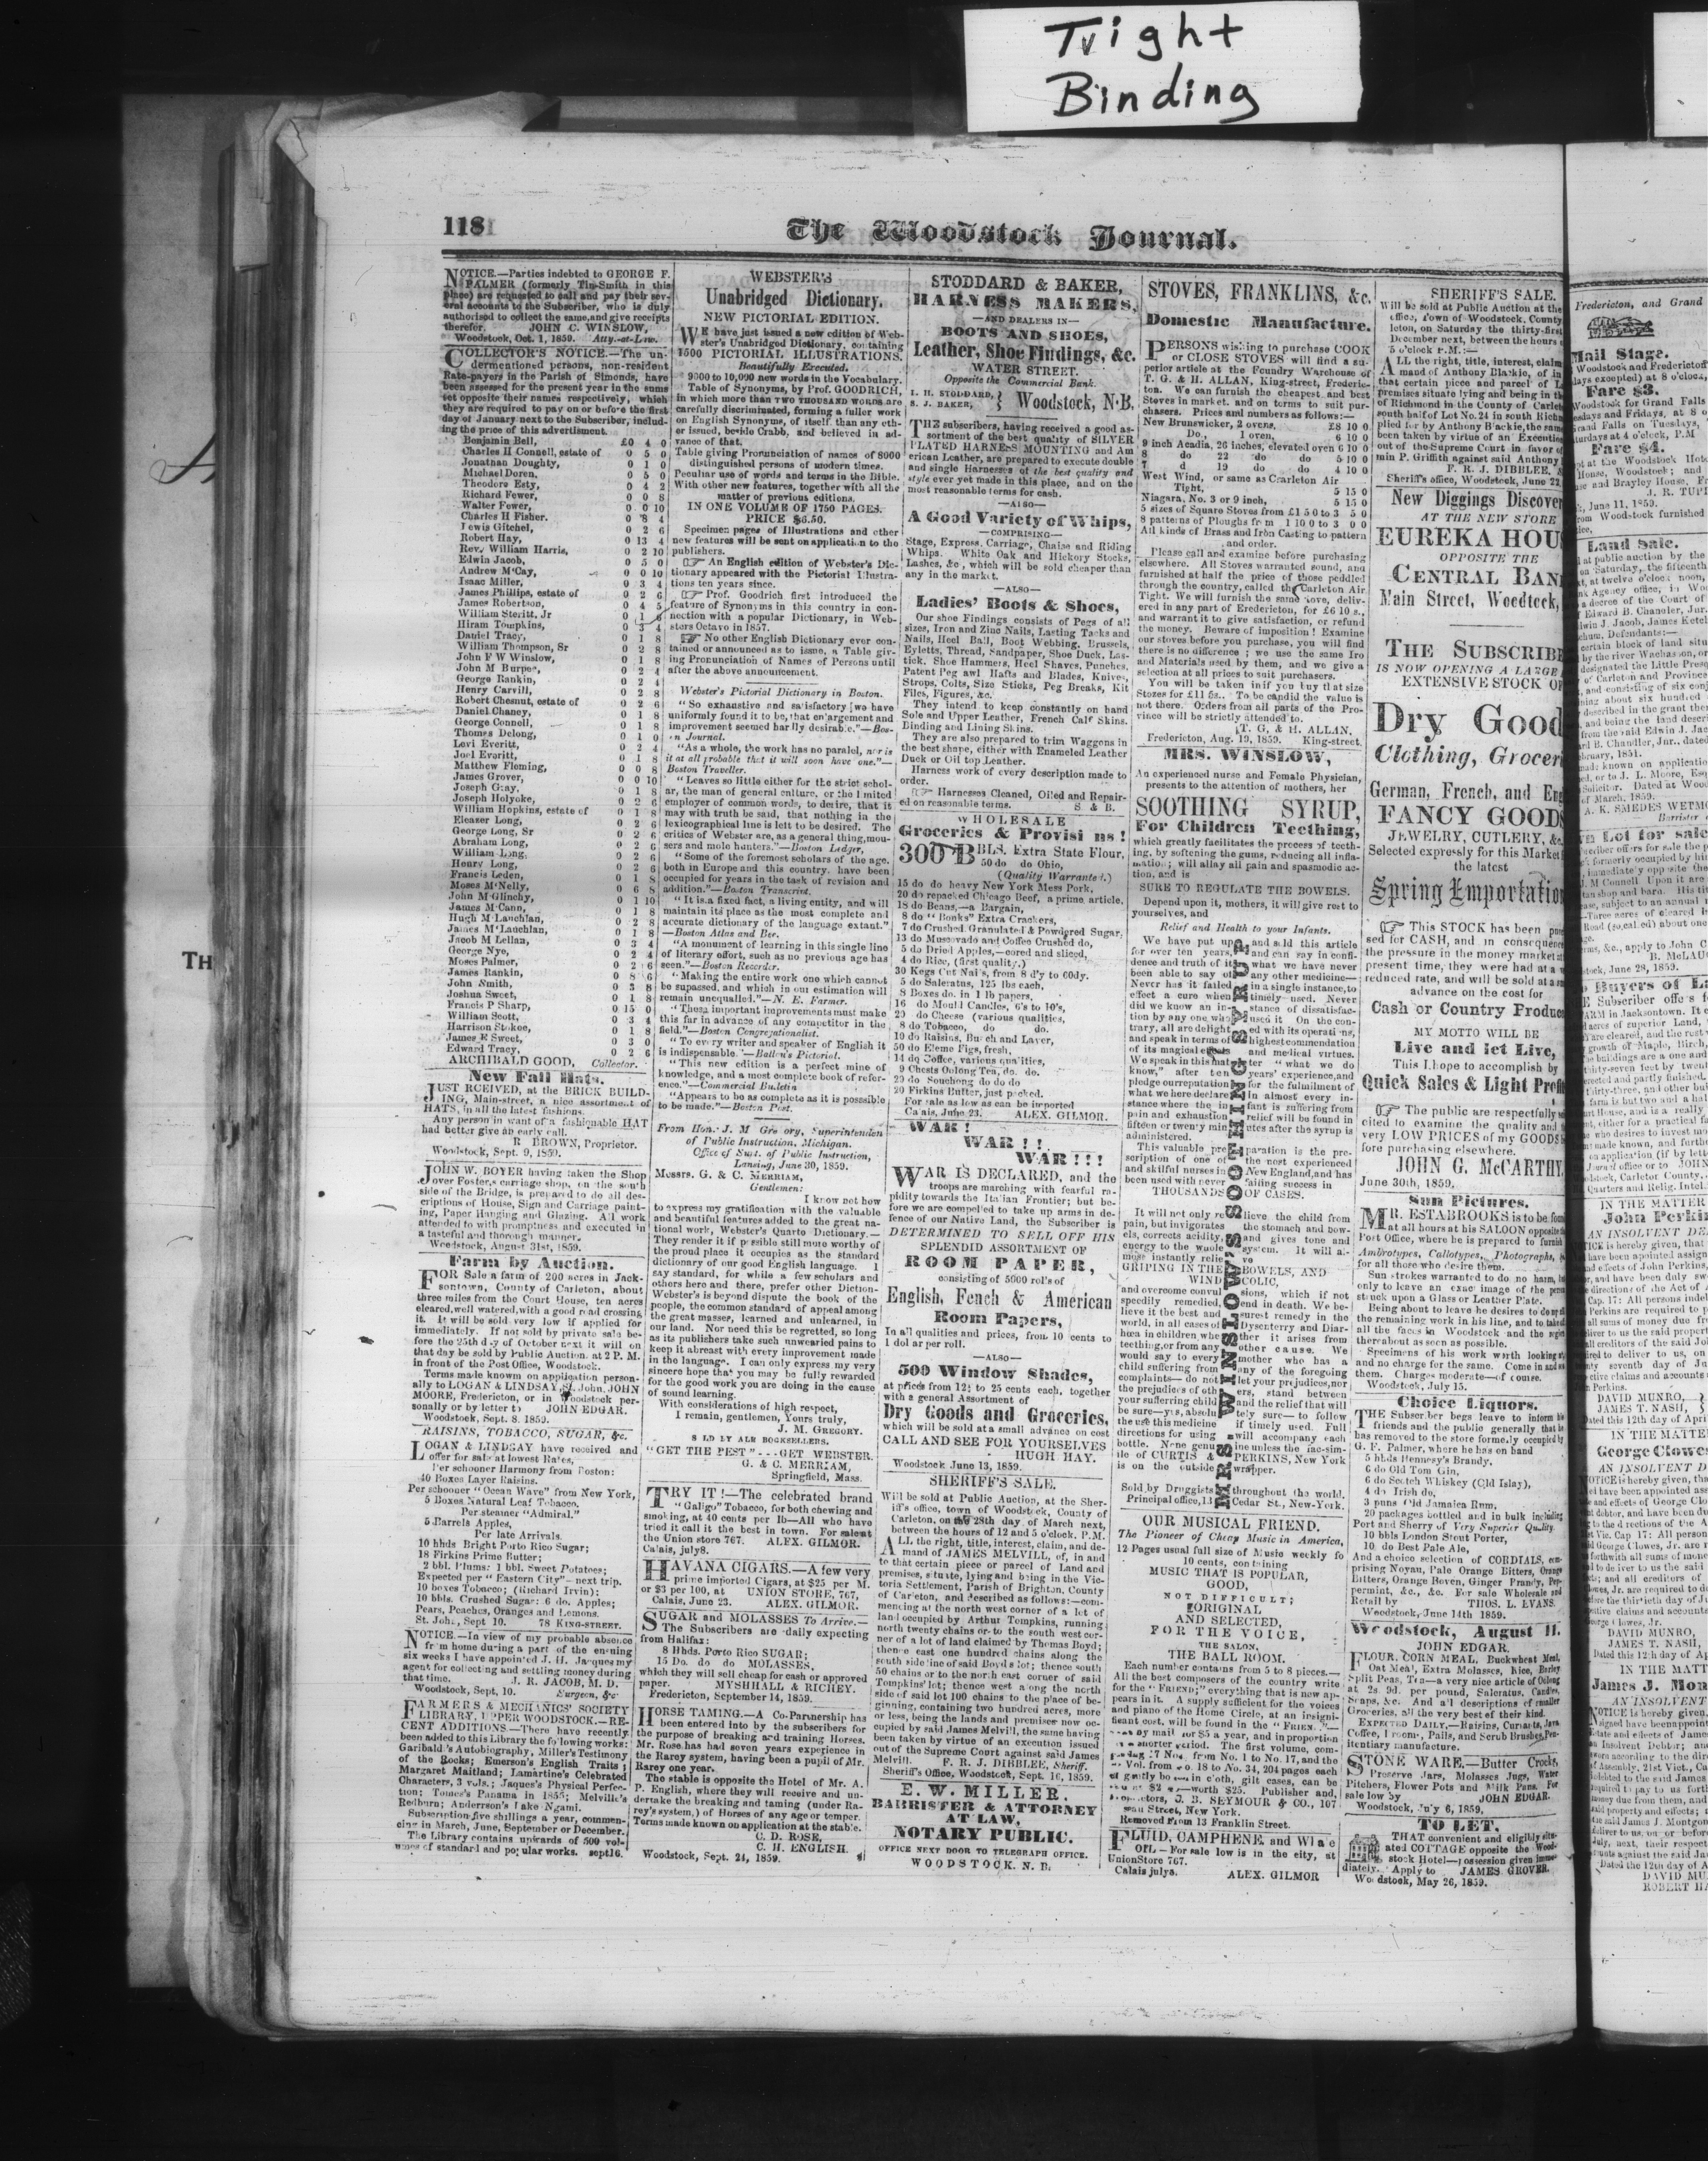 Tight
Binding
118
The Woodstock Journal.
NOTICE.—Parties indebted to GEORGE F.
PALMER (formerly Tin-Smith in this
place) are requested to call and pay their sev-
eral accounts to the Subscriber, who is duly
authorised to collect the same, and give receipts
therefor. JOHN C. WINSLOW,
Woodstock, Oct. 1, 1859. Atty.-at-Law.
COLLECTOR'S NOTICE.—The un-
dermentioned persons, non-resident
Rate-payers in the Parish of Simonds, have
been assessed for the present year in the sums
set opposite their names respectively, which
they are required to pay on or before the first
day of January next to the Subscriber, includ-
ing the price of this advertisment.
Benjamin Bell, £0 4 0
Charles H Connell, estate of 0 5 0
Jonathan Doughty, 0 1 0
Michael Doren, 0 5 0
Theodore Esty, 0 4 2
Richard Fewer, 0 0 8
Walter Fewer, 0 0 10
Charles H Fisher. 0 8 4
Lewis Gitchel, 0 2 6
Robert Hay, 0 13 4
Rev. William Harris, 0 2 10
Edwin Jacob, 0 5 0
Andrew M'Cay, 0 0 10
Isaac Miller, 0 3 4
James Phillips, estate of 0 2 6
James Robertson, 0 4 5
William Steritt, Jr 0 1
Hiram Tompkins, 0 3 4
Daniel Tracy, 0 1 8
William Thompson, Sr 0 2 8
John F W Winslow, 0 1 8
John M Burpee, 0 2 4
George Rankin, 0 2 4
Henry Carvill, 0 2 8
Robert Chesnut, estate of 0 2 6
Daniel Chaney, 0 1 8
George Connell, 0 1 8
Thomas Delong, 0 1 0
Levi Everitt, 0 2 4
Joel Everitt, 0 1 8
Matthew Fleming, 0 0 8
James Grover, 0 0 10
Joseph Gray, 0 1 8
Joseph Holyoke, 0 2 6
William Hopkins, estate of 0 1 8
Eleazer Long, 0 2 6
George Long, Sr 0 2 6
Abraham Long, 0 2 6
William Long, 0 2 6
Henry Long, 0 2 6
Francis Leden, 0 1 8
Moses M'Nelly, 0 6 8
John M'Glinchy, 0 1 10
James M'Cann, 0 1 8
Hugh M'Lauchlan, 0 2 8
James M'Lauchlan, 0 1 8
Jacob M Lellan, 0 3 4
George Nye, 0 2 4
Moses Palmer, 0 2 6
James Rankin, 0 8 6
John Smith, 0 3 8
Joshua Sweet, 0 1 8
Francis P Sharp, 0 15 0
William Scott, 0 3 4
Harrison Stokoe, 0 1 8
James E Sweet, 0 3 0
Edward Tracy, 0 2 6
ARCHIBALD GOOD, Collector.
New Fall Hats.
JUST RCEIVED, at the BRICK BUILD-
ING, Main-street, a nice assortment of
HATS, in all the latest fashions.
Any person in want of a fashionable HAT
had better give an early call.
R BROWN, Proprietor.
Woodstock, Sept. 9, 1859.
JOHN W. BOYER having taken the Shop
over Foster's carriage shop, on the south
side of the Bridge, is prepared to do all des-
criptions of House, Sign and Carriage paint-
ing, Paper Hanging and Glazing. All work
attended to with promptness and executed in
a tasteful and thorough manner.
Woodstock, August 31st, 1859.
Farm by Auction.
FOR Sale a farm of 200 acres in Jack-
sontown, County of Carleton, about
three miles from the Court House, ten acres
cleared, well watered, with a good road crossing
it. It will be sold very low if applied for
immediately. If not sold by private sale be-
fore the 25th day of October next it will on
that day be sold by Public Auction. at 2 P. M.
in front of the Post Office, Woodstock.
Terms made known on application person-
ally to LOGAN & LINDSAY, St. John, JOHN
MOORE, Fredericton, or in Woodstock per-
sonally or by letter to JOHN EDGAR.
Woodstock, Sept. 8. 1859.
RAISINS, TOBACCO, SUGAR, &c.
LOGAN & LINDSAY have received and
offer for sale at lowest Rates,
Per schooner Harmony from Boston:
40 Boxes Layer Raisins.
Per schooner "Ocean Wave" from New York,
5 Boxes Natural Leaf Tobacco.
Per steamer "Admiral."
5 Barrels Apples,
Per late Arrivals.
10 hhds Bright Porto Rico Sugar;
18 Firkins Prime Butter;
2 bbl. Plums: 1 bbl. Sweet Potatoes;
Expected per "Eastern City"—next trip.
10 boxes Tobacco; (Richard Irvin);
10 bbls. Crushed Sugar: 6 do. Apples;
Pears, Peaches, Oranges and Lemons.
St. John, Sept 10. 78 KING-STREET.
NOTICE.—In view of my probable absence
from home during a part of the ensuing
six weeks I have appointed J. H. Jacques my
agent for collecting and settling money during
that time. J. R. JACOB, M. D.
Woodstock, Sept. 10. Surgeon, &c
FARMERS & MECHANICS' SOCIETY
LIBRARY, UPPER WOODSTOCK.—RE-
CENT ADDITIONS.—There have recently
been added to this Library the following works:
Garibald's Autobiography, Miller's Testimony
of the Rocks; Emerson's English Traits;
Margaret Maitland; Lamartine's Celebrated
Characters, 3 vols.; Jaques's Physical Perfec-
tion; Tomes's Panama in 1855; Melville's
Redburn; Andersson's Lake Ngami.
Subscription five shillings a year, commen-
cing in March, June, September or December.
The Library contains upwards of 500 vol-
umes of standard and popular works. sept16.
WEBSTER'S
Unabridged Dictionary.
NEW PICTORIAL EDITION.
WE have just issued a new edition of Web-
ster's Unabridged Dictionary, containing
1500 PICTORIAL ILLUSTRATIONS.
Beautifully Executed.
9000 to 10,000 new words in the Vocabulary.
Table of Synonyms, by Prof. GOODRICH,
in which more than TWO THOUSAND WORDS are
carefully discriminated, forming a fuller work
on English Synonyms, of itself, than any oth-
er issued, beside Crabb, and believed in ad-
vance of that.
Table giving Pronunciation of names of 8000
distinguished persons of modern times.
Peculiar use of words and terms in the Bible.
With other new features, together with all the
matter of previous editions.
IN ONE VOLUME OF 1750 PAGES.
PRICE $6.50.
Specimen pages of Illustrations and other
new features will be sent on application to the
publishers.
☞ An English edition of Webster's Dic-
tionary appeared with the Pictorial Illustra-
tions ten years since.
☞ Prof. Goodrich first introduced the
feature of Synonyms in this country in con-
nection with a popular Dictionary, in Web-
sters Octavo in 1857.
☞ No other English Dictionary ever con-
tained or announced as to issue, a Table giv-
ing Pronunciation of Names of Persons until
after the above announcement.
Webster's Pictorial Dictionary in Boston.
"So exhaustive and satisfactory [we have
uniformly found it to be, that enlargement and
improvement seemed hardly desirable."—Bos-
ton Journal.
"As a whole, the work has no paralel, nor is
it at all probable that it will soon have one."—
Boston Traveller.
"Leaves so little either for the strict schol-
ar, the man of general culture, or the limited
employer of common words, to desire, that it
may with truth be said, that nothing in the
lexicographical line is left to be desired. The
critics of Webster are, as a general thing, mou-
sers and mole hunters."—Boston Ledger.
"Some of the foremost scholars of the age,
both in Europe and this country, have been
occupied for years in the task of revision and
addition."—Boston Transcript.
"It is a fixed fact, a living entity, and will
maintain its place as the most complete and
accurate dictionary of the language extant."
—Boston Atlas and Bee.
"A monument of learning in this single line
of literary effort, such as no previous age has
seen."—Boston Recorder.
"Making the entire work one which cannot
be supassed, and which in our estimation will
remain unequalled."—N. E. Farmer.
"These important improvements must make
this far in advance of any competitor in the
field."—Boston Congregationalist.
"To every writer and speaker of English it
is indispensable."—Ballou's Pictorial.
"This new edition is a perfect mine of
knowledge, and a most complete book of refer-
ence."—Commercial Bulletin
"Appears to be as complete as it is possible
to be made."—Boston Post.
From Hon. J. M Gregory, Superintenden
of Public Instruction, Michigan.
Office of Supt. of Public Instruction,
Lansing, June 30, 1859.
Messrs. G. & C. MERRIAM,
Gentlemen:
I know not how
to express my gratification with the valuable
and beautiful features added to the great na-
tional work, Webster's Quarto Dictionary.—
They render it if possible still more worthy of
the proud place it occupies as the standard
dictionary of our good English language. I
say standard, for while a few scholars and
others here and there, prefer other Diction-
Webster's is beyond dispute the book of the
people, the common standard of appeal among
the great masser, learned and unlearned, in
our land. Nor need this be regretted, so long
as its publishers take such unwearied pains to
keep it abreast with every improvement made
in the language. I can only express my very
sincere hope that you may be fully rewarded
for the good work you are doing in the cause
of sound learning.
With considerations of high respect,
I remain, gentlemen, Yours truly,
J. M. GREGORY.
SOLD BY ALL BOOKSELLERS.
"GET THE BEST"...GET WEBSTER.
G. & C. MERRIAM,
Springfield, Mass.
TRY IT!—The celebrated brand
"Galigo" Tobacco, for both chewing and
smoking, at 40 cents per lb—All who have
tried it call it the best in town. For sale at
the Union store 767. ALEX. GILMOR.
Calais, july8.
HAVANA CIGARS.—A few very
prime imported Cigars, at $25 per M.
or $3 per 100, at UNION STORE, 767,
Calais, June 23. ALEX. GILMOR.
SUGAR and MOLASSES To Arrive.—
The Subscribers are daily expecting
from Halifax:
8 Hhds. Porto Rico SUGAR;
15 Do. do do MOLASSES,
which they will sell cheap for cash or approved
paper. MYSHHALL & RICHEY.
Fredericton, September 14, 1859.
HORSE TAMING.—A Co-Partnership has
been entered into by the subscribers for
the purpose of breaking and training Horses.
Mr. Rose has had seven years experience in
the Rarey system, having been a pupil of Mr.
Rarey one year.
The stable is opposite the Hotel of Mr. A.
P. English, where they will receive and un-
dertake the breaking and taming (under Ra-
rey's system,) of Horses of any age or temper.
Terms made known on application at the stable.
C. D. ROSE,
C. H. ENGLISH.
Woodstock, Sept. 24, 1859.
STODDARD & BAKER,
HARNESS MAKERS,
—AND DEALERS IN—
BOOTS AND SHOES,
Leather, Shoe Findings, &c.
WATER STREET.
Opposite the Commercial Bank.
I. H. STODDARD,
S. J. BAKER, } Woodstock, N·B.
THE subscribers, having received a good as-
sortment of the best quality of SILVER
PLATED HARNESS MOUNTING and Am
erican Leather, are prepared to execute double
and single Harnesses of the best quality and
style ever yet made in this place, and on the
most reasonable terms for cash.
—ALSO—
A Good Variety of Whips,
—COMPRISING—
Stage, Express, Carriage, Chaise and Riding
Whips. White Oak and Hickory Stocks,
Lashes, &c, which will be sold cheaper than
any in the market.
—ALSO—
Ladies' Boots & Shoes,
Our shoe Findings consists of Pegs of all
sizes, Iron and Zinc Nails, Lasting Tacks and
Nails, Heel Ball, Boot Webbing, Brussels,
Eyletts, Thread, Sandpaper, Shoe Duck, Las-
tick. Shoe Hammers, Heel Shaves, Punches,
Patent Peg awl Hafts and Blades, Knives,
Strops, Colts, Size Sticks, Peg Breaks, Kit
Files, Figures, &c.
They intend to keep constantly on hand
Sole and Upper Leather, French Calf Skins.
Binding and Lining Skins.
They are also prepared to trim Waggons in
the best shape, either with Enameled Leather
Duck or Oil top Leather.
Harness work of every description made to
order.
☞ Harnesses Cleaned, Oiled and Repair-
ed on reasonable terms. S & B.
WHOLESALE
Groceries & Provisi ns!
300 BBLS. Extra State Flour,
50 do do Ohio,
(Quality Warranted.)
15 do do heavy New York Mess Pork.
20 do repacked Chicago Beef, a prime article.
18 do Beans,—a Bargain,
8 do "Bonks" Extra Crackers,
7 do Crushed Granulated & Powdered Sugar,
13 do Muscovado and Coffee Crushed do,
5 do Dried Apples,—cored and sliced,
4 do Rice, (first quality.)
30 Kegs Cut Nai's, from 8 d'y to 60dy.
5 do Saleratus, 125 lbs each,
8 Boxes do. in 1 lb papers,
16 do Mould Candles, 6's to 10's,
20 do Cheese (various qualities,
8 do Tobacco, do do.
10 do Raisins, Bunch and Layer,
50 do Eleme Figs, fresh,
14 dq Coffee, various qualities,
9 Chests Oolong Tea, do. do.
20 do Souchong do do do
20 Firkins Butter, just packed.
For sale as low as can be imported
Calais, June 23. ALEX. GILMOR.
WAR!
WAR!!
WAR!!!
WAR IS DECLARED, and the
troops are marching with fearful ra-
pidity towards the Italian Frontier; but be-
fore we are compelled to take up arms in de-
fence of our Native Land, the Subscriber is
DETERMINED TO SELL OFF HIS
SPLENDID ASSORTMENT OF
ROOM PAPER,
consisting of 5000 rol's of
English, Fench & American
Room Papers,
In all qualities and prices, from 10 cents to
1 dol ar per roll.
—ALSO—
500 Window Shades,
at prices from 12½ to 25 cents each, together
with a general Assortment of
Dry Goods and Groceries,
which will be sold at a small advance on cost
CALL AND SEE FOR YOURSELVES
HUGH HAY.
Woodstock June 13, 1859.
SHERIFF'S SALE.
Will be sold at Public Auction, at the Sher-
iff's office, town of Woodstock, County of
Carleton, on the 28th day of March next,
between the hours of 12 and 5 o'clock. P.M.
ALL the right, title, interest, claim, and de-
mand of JAMES MELVILL, of, in and
to that certain piece or parcel of Land and
premises, situate, lying and being in the Vic-
toria Settlement, Parish of Brighton, County
of Carleton, and described as follows:—com-
mencing at the north west corner of a lot of
land occupied by Arthur Tompkins, running
north twenty chains or to the south west cor-
ner of a lot of land claimed by Thomas Boyd;
thence east one hundred chains along the
south side line of said Boyd s lot; thence south
50 chains or to the north east corner of said
Tompkins' lot; thence west along the north
side of said lot 100 chains to the place of be-
ginning, containing two hundred acres, more
or less, being the lands and premises now oc-
cupied by said James Melvill, the same having
been taken by virtue of an execution issued
out of the Supreme Court against said James
Melvill. F. R. J. DIBBLEE, Sheriff.
Sheriff's Office, Woodstock, Sept. 16, 1859.
E. W. MILLER,
BARRISTER & ATTORNEY
AT LAW,
NOTARY PUBLIC.
OFFICE NEXT DOOR TO TELEGRAPH OFFICE.
WOODSTOCK. N. B.
STOVES, FRANKLINS, &c.
Domestic Manufacture.
PERSONS wishing to purchase COOK
or CLOSE STOVES will find a su-
perior article at the Foundry Warehouse of
T. G. & H. ALLAN, King-street, Frederic-
ton. We can furnish the cheapest and best
Stoves in market, and on terms to suit pur-
chasers. Prices and numbers as follows:—
New Brunswicker, 2 ovens, £8 10 0
Do., 1 oven, 6 10 0
9 inch Acadia, 26 inches, elevated oven 6 10 0
8 do 22 do do 5 10 0
7 d 19 do do 4 10 0
West Wind, or same as Carleton Air
Tight, 5 15 0
Niagara, No. 3 or 9 inch, 5 15 0
5 sizes of Square Stoves from £1 5 0 to 3 5 0
8 patterns of Ploughs from 1 10 0 to 3 0 0
All kinds of Brass and Iron Casting to pattern
and order.
Please call and examine before purchasing
elsewhere. All Stoves warranted sound, and
furnished at half the price of those peddled
through the country, called the Carleton Air
Tight. We will furnish the same stove, deliv-
ered in any part of Eredericton, for £6 10 s.,
and warrant it to give satisfaction, or refund
the money. Beware of imposition! Examine
our stoves before you purchase, you will find
there is no difference; we use the same Iro
and Materials used by them, and we give a
selection at all prices to suit purchasers.
You will be taken in if you buy that size
Stozes for £11 5s. To be candid the value is
not there. Orders from all parts of the Pro-
vince will be strictly attended to.
T. G. & H. ALLAN,
Fredericton, Aug. 19, 1859. King-street.
MRS. WINSLOW,
An experienced nurse and Female Physician,
presents to the attention of mothers, her
SOOTHING SYRUP,
For Children Teething,
which greatly facilitates the process of teeth-
ing, by softening the gums, reducing all infla-
mation; will allay all pain and spasmodic ac-
tion, and is
SURE TO REGULATE THE BOWELS.
Depend upon it, mothers, it will give rest to
yourselves, and
Relief and Health to your Infants.
We have put up and sold this article
for over ten years, and can say in confi-
dence and truth of it what we have never
been able to say of any other medicine—
Never has it failed in a single instance, to
effect a cure when timely used. Never
did we know an in- stance of dissatisfac-
tion by any one who used it On the con-
trary, all are delight ed with its operations,
and speak in terms of highest commendation
of its magical effects and medical virtues.
We speak in this mat ter "what we do
know," after ten years' experience, and
pledge our reputation for the fulnilment of
what we here declare In almost every in-
stance where the in- fant is suffering from
pain and exhaustion relief will be found in
fifteen or twenty min utes after the syrup is
administered.
This valuable pre paration is the pre-
scription of one of the most experienced
and skilful nurses in New England, and has
been used with never failing success in
THOUSANDS OF CASES.
MRS WINSLOW'S SOOTHING SYRUP
It will not only re lieve the child from
pain, but invigorates the stomach and bow-
els, corrects acidity, and gives tone and
energy to the whole system. It will al-
most instantly relie ve
GRIPING IN THE BOWELS, AND
WIND COLIC,
and overcome convul sions, which if not
speedily remedied, end in death. We be-
lieve it the best and surest remedy in the
world, in all cases of Dysenterry and Diar-
hœa in children whe ther it arises from
teething, or from any other cause. We
would say to every mother who has a
child suffering from any of the foregoing
complaints—do not let your prejudices, nor
the prejudices of oth ers, stand between
your suffering child and the relief that will
be sure—yes, absolu tely sure—to follow
the use this medicine if timely used. Full
directions for using will accompany each
bottle. None genu ine unless the fac-sim-
ile of CURTIS & PERKINS, New York
is on the outside wrapper.
Sold by Druggists throughout the world.
Principal office, 13 Cedar St., New-York.
OUR MUSICAL FRIEND.
The Pioneer of Cheap Music in America,
12 Pages usual full size of Music weekly fo
10 cents, containing
MUSIC THAT IS POPULAR,
GOOD,
NOT DIFFICULT;
ORIGINAL
AND SELECTED,
FOR THE VOICE,
THE SALON,
THE BALL ROOM.
Each number contains from 5 to 8 pieces.—
All the best composers of the country write
for the "FRIEND;" everything that is new ap-
pears in it. A supply sufficient for the voices
and piano of the Home Circle, at an insigni-
ficant cost, will be found in the "FRIEND."—
by mail for $5 a year, and in proportion
shorter period. The first volume, com-
17 Nos. from No. 1 to No. 17, and the
Vol. from No. 18 to No. 34, 204 pages each
in cloth, gilt cases, can be
$2 —worth $25. Publisher and,
J. B. SEYMOUR & CO., 107
Street, New York.
Removed From 13 Franklin Street.
FLUID, CAMPHENE and Wl a e
OIL—For sale low is in the city, at
UnionStore 767.
Calais july8. ALEX. GILMOR
SHERIFF'S SALE.
Will be sold at Public Auction at the
office, Town of Woodstock, County
leton, on Saturday the thirty-first
December next, between the hours
5 o'clock P.M.:—
ALL the right, title, interest, claim
mand of Anthony Blackie, of in
that certain piece and parcel of
premises situate lying and being in th
of Richmond in the County of Carlet
south half of Lot No. 24 in south Richm
plied for by Anthony Blackie, the same
been taken by virtue of an Execution
out of the Supreme Court in favor of
min P. Griffith against said Anthony
F. R. J. DIBBLEE,
Sheriff's office, Woodstock, June 22
New Diggings Discover
AT THE NEW STORE
EUREKA HOU
OPPOSITE THE
CENTRAL BAN
Main Street, Woedtcck,
THE SUBSCRIBE
IS NOW OPENING A LARGE
EXTENSIVE STOCK OF
Dry Good
Clothing, Grocer
German, French, and Eng
FANCY GOODS
JEWELRY, CUTLERY, &c.
Selected expressly for this Market
the latest
Spring Importation
☞ This STOCK has been pur
sed for CASH, and in consequence
the pressure in the money market at
present time, they were had at a
reduced rate, and will be sold at a
advance on the cost for
Cash or Country Produce
MY MOTTO WILL BE
Live and let Live,
This I hope to accomplish by
Quick Sales & Light Profit
☞ The public are respectfully
cited to examine the quality and
very LOW PRICES of my GOODS
fore purchasing elsewhere.
JOHN G. McCARTHY.
June 30th, 1859.
Sun Pictures.
MR. ESTABROOKS is to be found
at all hours at his SALOON opposite the
Post Office, where he is prepared to furnish
Ambrotypes, Callotypes, Photographs,
for all those who desire them.
Sun strokes warranted to do no harm,
only to leave an exac image of the
stuck upon a Glass or Leather Plate.
Being about to leave he desires to
the remaining work in his line, and to
all the faces in Woodstock and the
thereabout as soon as possible.
Specimens of his work worth looking
and no charge for the same. Come in and
them. Charges moderate—of course.
Woodstock, July 15.
Choice Liquors.
THE Subscriber begs leave to inform his
friends and the public generally that
has removed to the store formerly occupied by
G. F. Palmer, where he has on hand
5 hhds Hennesy's Brandy.
6 do Old Tom Gin,
6 do Scotch Whiskey (Old Islay),
4 do Irish do,
3 puns Old Jamaica Rum,
20 packages bottled and in bulk including
Port and Sherry of Very Superior Quality
10 bbls London Stout Porter,
10 do Best Pale Ale,
And a choice selection of CORDIALS, com-
prising Noyau, Pale Orange Bitters, Orange
Bitters, Orange Boven, Ginger Brandy, Pep-
permint, &c., &c. For sale Wholesale and
Retail by THOS. L. EVANS.
Woodstock, June 14th 1859.
Woodstock, August 11.
JOHN EDGAR.
FLOUR, CORN MEAL, Buckwheat Meal,
Oat Meal, Extra Molasses, Rice, Barley
Split Peas, Tea—a very nice article of Oolong
at 2s 9d. per pound, Saleratus, Candles,
Soaps, &c. And all descriptions of smaller
Groceries, all the very best of their kind.
EXPECTED DAILY,—Raisins, Currants, Java
Coffee, Brooms, Pails, and Scrub Brushes, Pen-
itentiary manufacture.
STONE WARE,—Butter Crocks,
Preserve Jars, Molasses Jugs, Water
Pitchers, Flower Pots and Milk Pans. For
sale low by JOHN EDGAR.
Woodstock, July 6, 1859.
TO LET.
THAT convenient and eligibly situ-
ated COTTAGE opposite the Wood-
stock Hotel—possession given imme-
diately. Apply to JAMES GROVER.
Woodstock, May 26, 1859.
TH
Fredericton, and Grand
Mail Stage.
Woodstock and Fredericton
days excepted) at 8 o'clock,
Fare $3.
Woodstock for Grand Falls
sdays and Fridays, at 8 o
Grand Falls on Tuesdays,
turdays at 4 o'clock, P.M
Fare $4.
at the Woodstock Hote
House, Woodstock; and
and Brayley House, F
J. R. TUP
June 11, 1859.
from Woodstock furnished
Land Sale.
JOHN G
B. McLAU
June 28, 1859.
Buyers of La
IN THE MATTER
John Perkin
AN INSOLVENT DE
DAVID MUNRO,
JAMES T. NASH,
Dated this 12th day of Apr
IN THE MATTE
George Clowe
AN INSOLVENT D
DAVID MUNRO,
JAMES T. NASH,
Dated this 12th day of Ap
IN THE MATT
James J. Mon
AN INSOLVENT
Dated the 12th day of A
DAVID MU
ROBERT HA